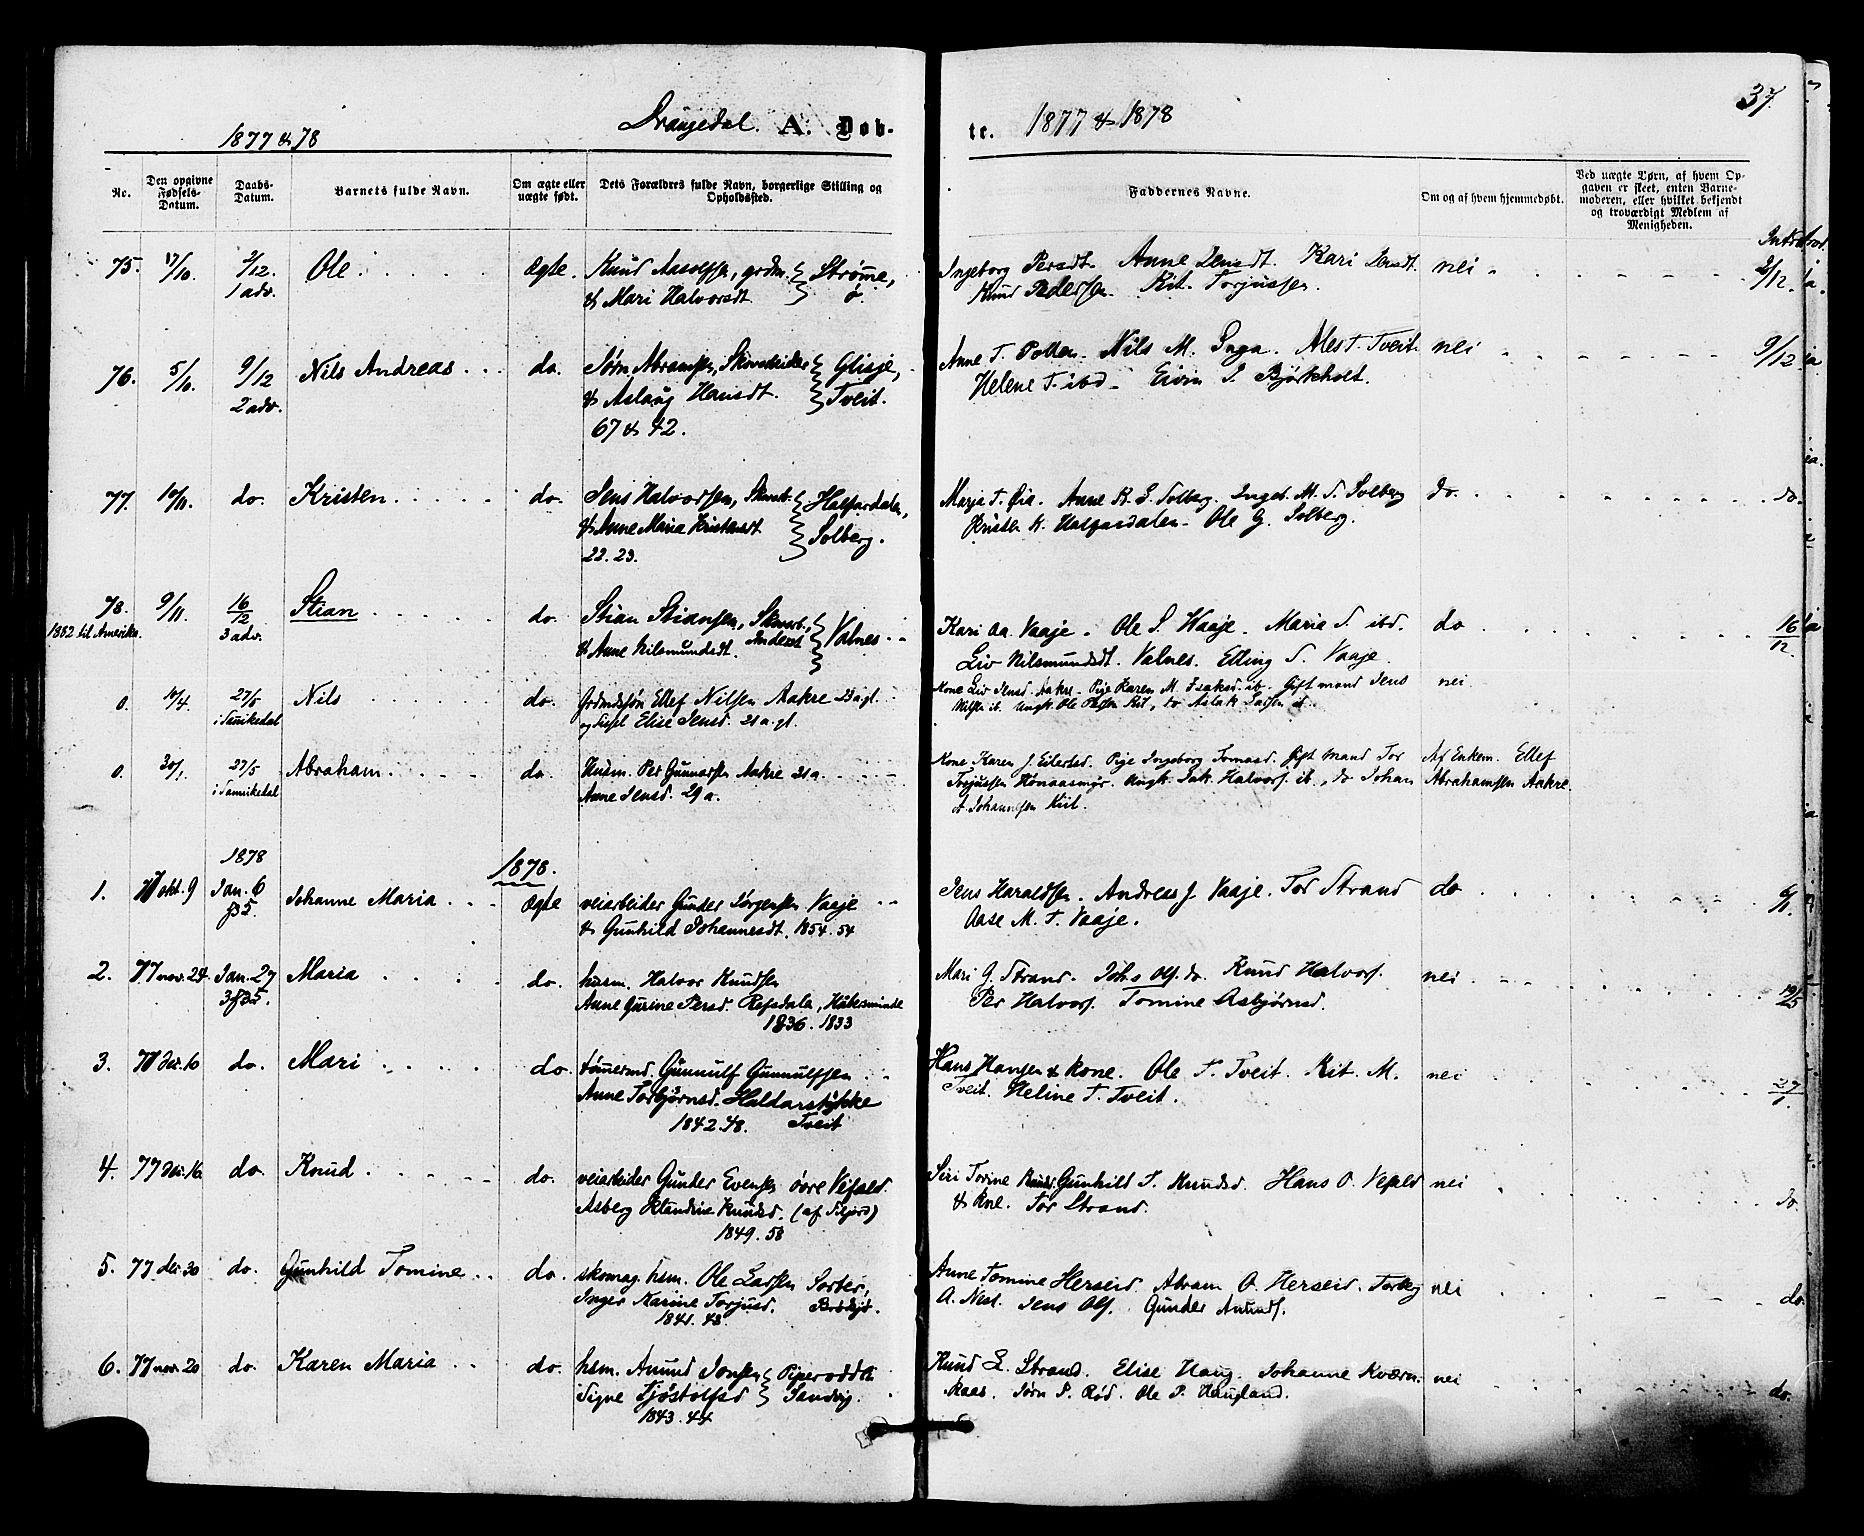 Drangedal. A. Døb-
1877 & 78
te. 1877 & 1878
37.
No.
Den opgivne Fødsels-Datum.
Daabs-Datum.
Barnets fulde Navn.
Om ægte eller uægte født.
Dets Forældres fulde Navn, borgerlige Stilling og Opholdssted.
Faddernes Navne.
Om og af hvem hjemmedøbt.
Ved uægte Børn, af hvem Opgaven er skeet, enten Barnemoderen, eller hvilket bekjendt og troværdigt Medlem af Menigheden.
75. 17/10. 2/12. Ole Ægte. Knud Aasolfsen, grdm. Strømme,
1 adv. & Mari Halvorsdt. ø.
Ingeborg Persdt. Anne Jensdt. Kari Jensdt. nei 2/12.
Knud Pedersen. Kit. Torjussen.
76. 5/10. 9/12 Nils Andreas do. Sørn Abramsen, Glisje,
2 adv. & Aslaug Hansdt. Tveit.
67 & 42.
Anne T. Nils M. Tveit nei 9/12
Helene T. ibd. Eivin J. Bjørkholt.
77. 10/11. do. Kristen do. Jens Halvorsen, Skomb. Halfardalen,
& Anne Maria Solberg.
22. 23.
Marja T. Øia. Anne K. S. Solberg. Ingeb. M. S. Solberg do. do.
K. Halfardalen. Ole G. Solberg.
78. 9/11. 16/12 Stian do. Stian Stiansen, Valnes
1882 til Amerika. 3 adv. & Anne Nilsmundsdt.
Kari Aa. Vaaje. Ole S. Waaje. Maria S. ibd. do 16/12.
Liv Nilsmundsdt. Valnes. Elling S. Vaaje.
0. 10/4. 27/5 Nils do. Grdmdsøn Ellef Nilsen Aakre 23 a gl.
i Tørrikedal og Elise Jensd. 21 a. gl.
Kone Liv Jensd. Aakre. Pige Karen M. Isaksd. ib. Gift mand Jens nei
Nilsen ib. Ungk. Ole, do Aslak
0. 30/1. 27/5 Abraham do. Husm. Per Gunnarsen Aakre 31 a.
i Tørrikedal Anne Jensd. 29 a.
Kone Karen J. Eilertsd. Pige Ingeborg Tomasd. Gift Mand Tor Af Enkem. Ellef
Torjussen Ungk. Jak. Halvors. ib., do Johan Abrahamsen Aakre.
A. Johannesen
1878
1878.
1. 77 okt. 9 Jan. 6 Johanne Maria Ægte veiarbeider Gunder Jørgensen Vaaje
& Gunhild Johannesdt. 1854. 54
Jens Haraldsen. Andreas J. Vaaje. Tor Strand do 6/1.
Aase M. T. Vaaje.
2. 77 nov. 24. Jan. 27 Maria do. husm. Halvor Knudsen
Anne Gurine Persd. Refsdalen,
1836. 1833
Mari G. Strand. Johs Ols. do. Knud Halvors. nei
Per Halvors. Tomine Asbjørnsd.
3. 77 dec. 10 do. Mari do. tømermd. Gunnulf Gunnulfsen
Anne Torbjørnsd. Haldarstykke
1842. 48. Tveit
Hans Hansen & kone. Ole T. Tveit. Kit. M. nei 27/1.
Tveit. Heline T. Tveit.
4. 77 dec. 16 do. Knud do. veiarbeider Gunder Evensen øvre Vefald.
Asberg Klaudine Knudsd.
1849. 58
Siri Torine Gunhild T. Knudsd. Hans O. Vefald nei do.
& Kone. Tor Strand.
5. 77 dec. 30 do. Gunhild Tomine do. skomag. hsm. Ole Larsen
Inger Karine Torjusd.
1841. 43
Anne Tomine Herseid. Abram O. Herseid. nei do.
A. Nest. Jens Ols. Gunder Anunds.
6. 77 nov. 20 do. Karen Maria do. hsm. Anund Jonsen Piperodden
Signe Tjøstolfsd Sandvig.
1843. 44
Knud L. Strand. Elise Haug. Johanne Kværn- nei do.
kaas. Jørn P. Rød. Ole P. Haugland.